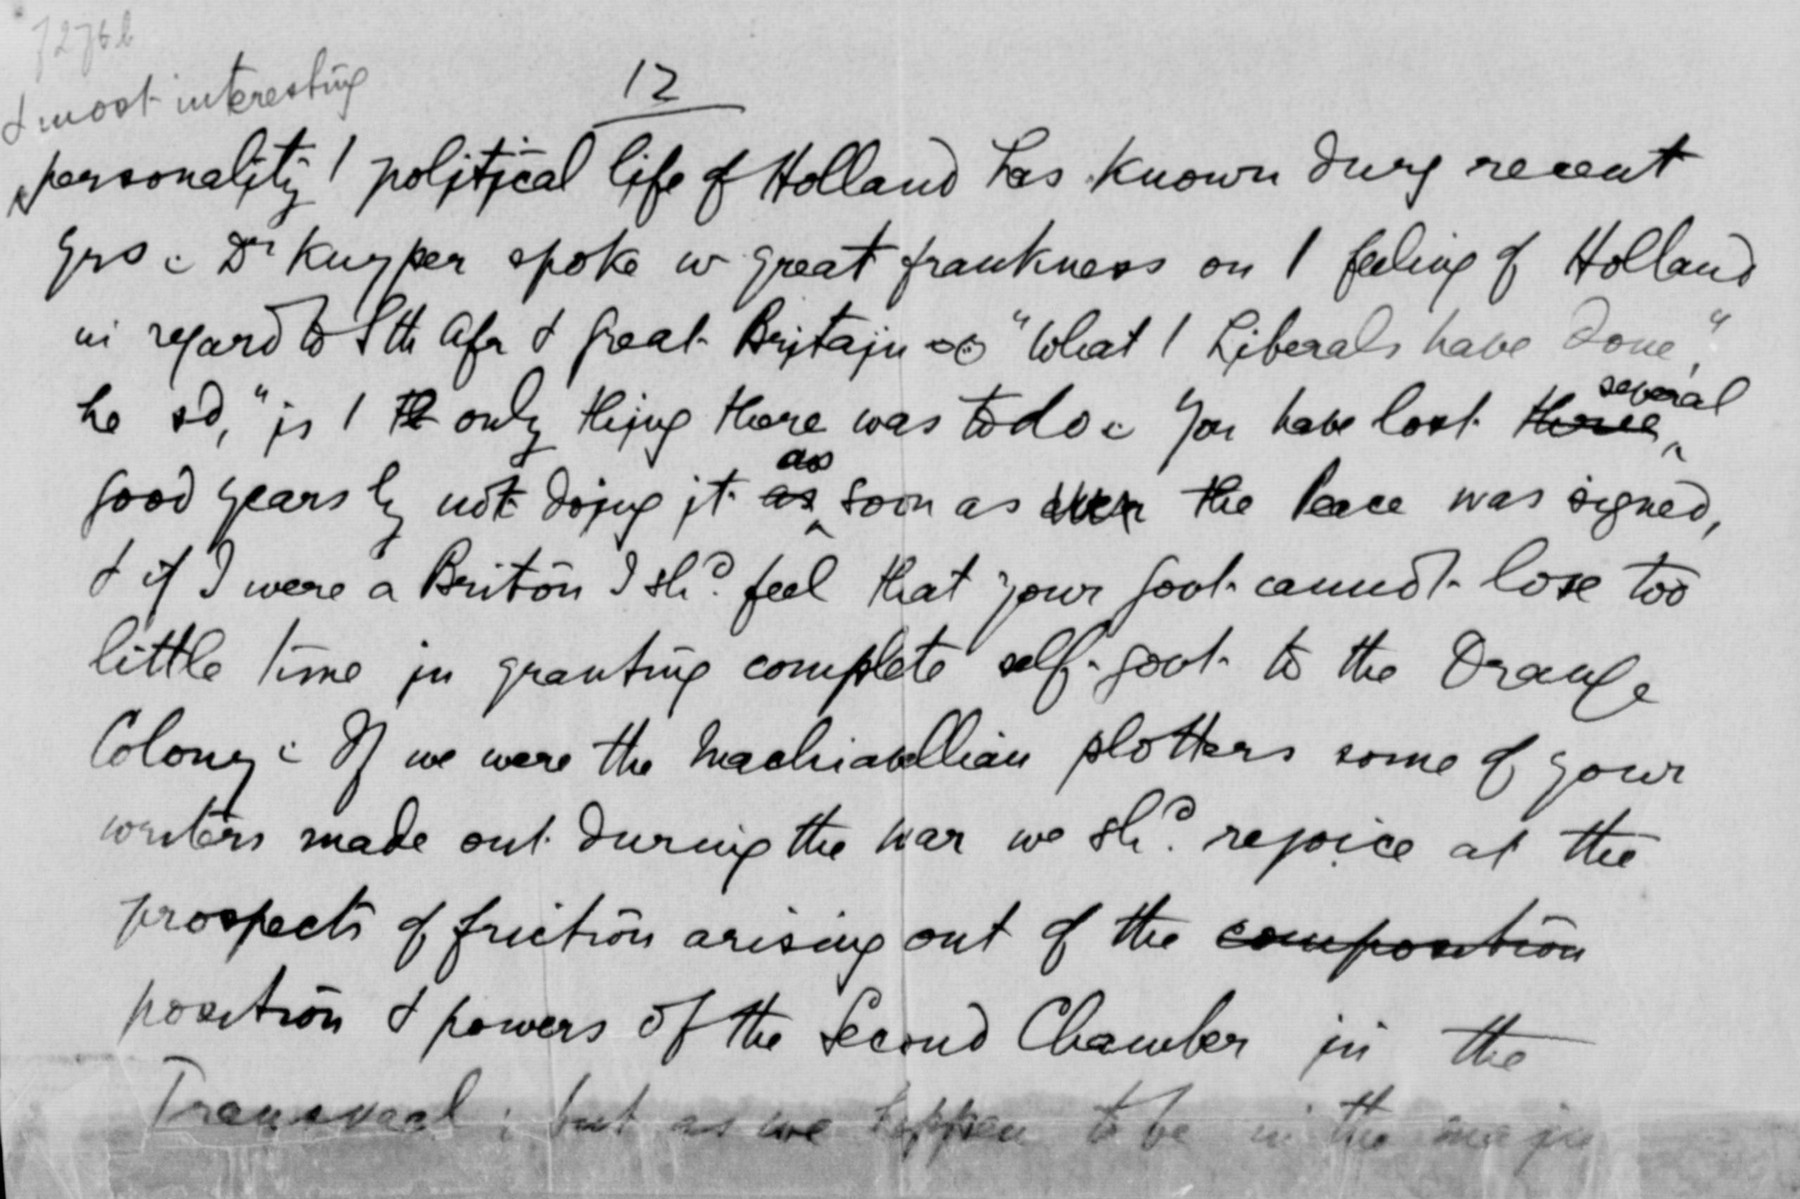 7276b
12
& most interesting
personality / political life of Holland has known durg recent
yrs : Dr Kuyper spoke w great frankness on / feeling of Holland
in regard to Sth Afr & Great Britain "What / Liberals have done,"
he sd, "is / th only thing there was to do : You have lost three several
good years by not doing it as as soon as ever the Peace was signed,
& if I were a Briton I shd feel that your Govt cannot lose too
little time in granting complete self-govt to the Orange
Colony : If we were the Machiavellian plotters some of your
writers made out during the war we shd rejoice at the
prospects of friction arising out of the composition
position & powers of the Second Chamber in the
Transvaal ; but as we happen to be in the main